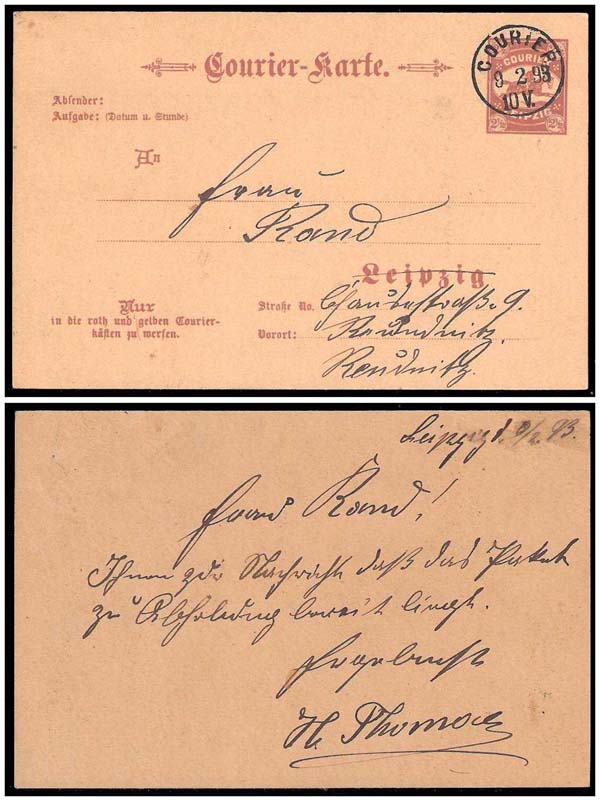 Courier-Karte.
COURIER
9 2 93
10 V.
COURIER
LEIPZIG
2½ 2½
Absender:
Aufgabe: (Datum u. Stunde)
An
Frau
Rand
Leipzig
Nur
in die roth und gelben Courier-
kästen zu werfen.
Straße No. 9.
Vorort: Reundnitz.
Reudnitz.
Leipzig d. 9/2 93.
Frau Rand!
Ihnen zur Nachricht daß das Paket
zu Abholung bereit liegt.
Ergebenst
H. Thomas